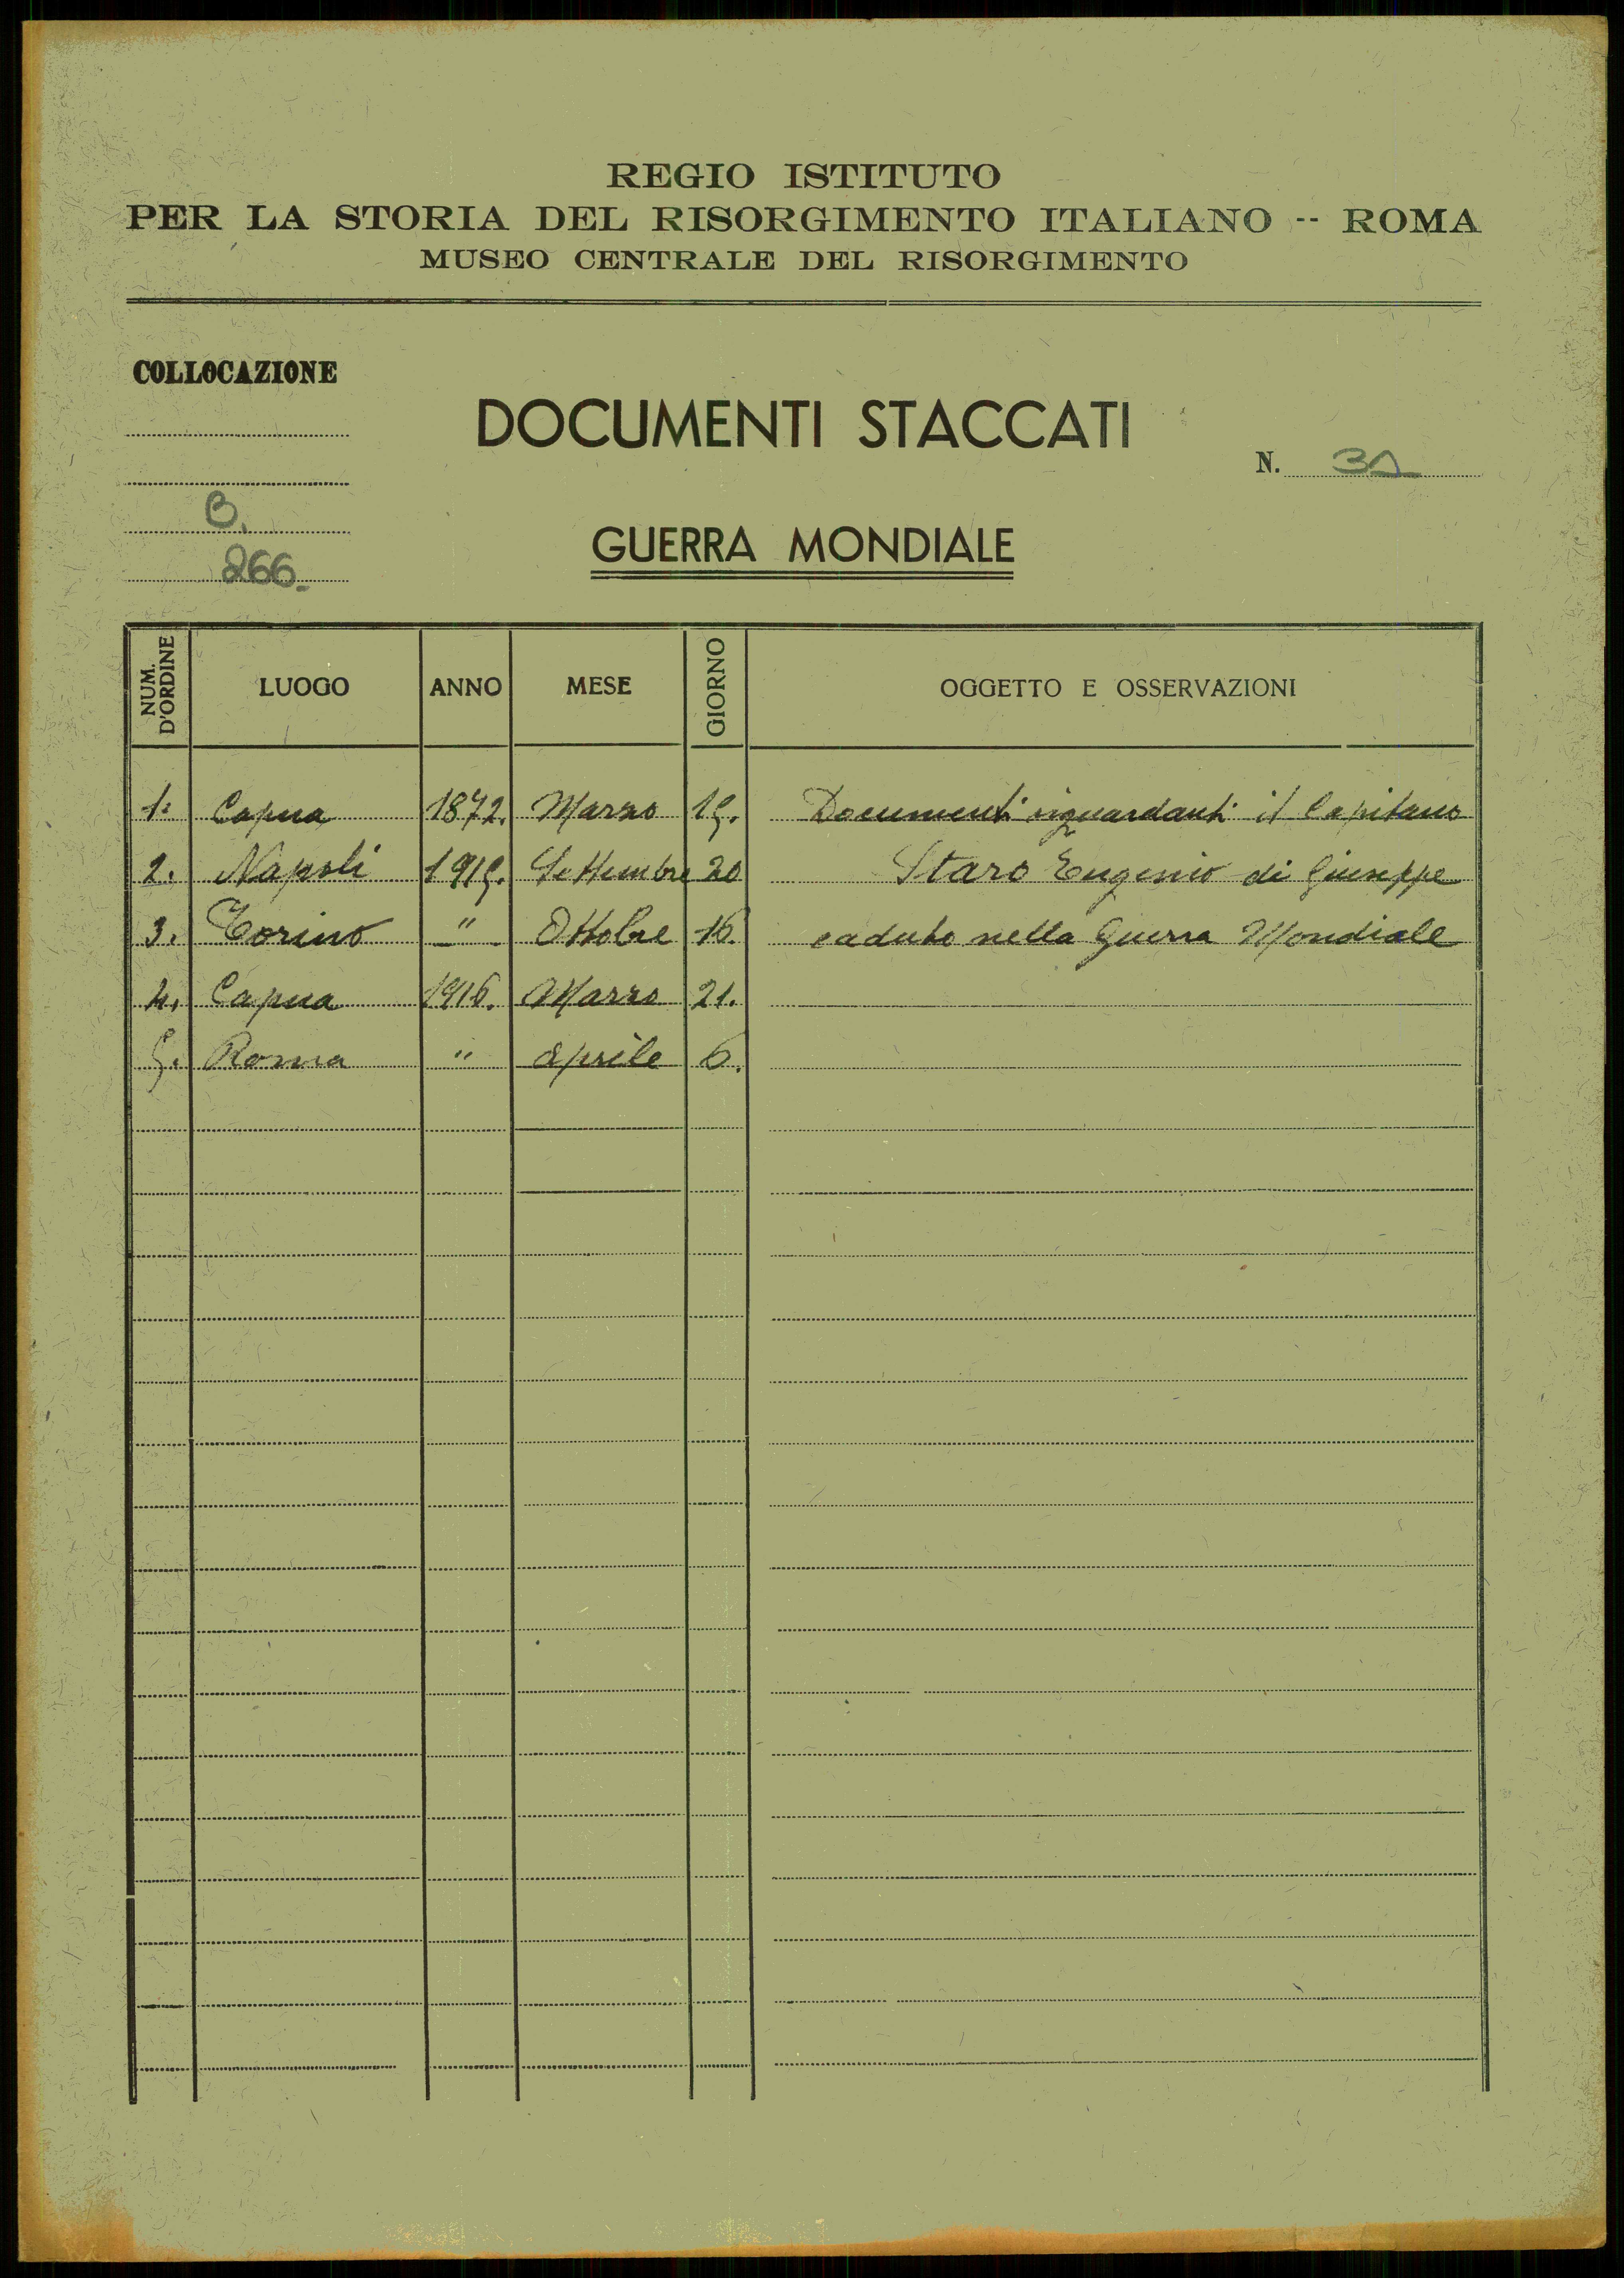 REGIO ISTITUTO
PER LA STORIA DEL RISORGIMENTO ITALIANO -- ROMA
MUSEO CENTRALE DEL RISORGIMENTO
COLLOCAZIONE
DOCUMENTI STACCATI
N. 31
B.
GUERRA MONDIALE
266.
NUM. D'ORDINE LUOGO ANNO MESE GIORNO OGGETTO E OSSERVAZIONI
1. Capua 1872. Marzo 15. Documenti riguardanti il Capitano
2. Napoli 1915. Settembre 20 Staro Eugenio di Giuseppe
3. Torino " Ottobre 16. caduto nella Guerra Mondiale
4. Capua 1916. Marzo 21.
5. Roma " Aprile 6.